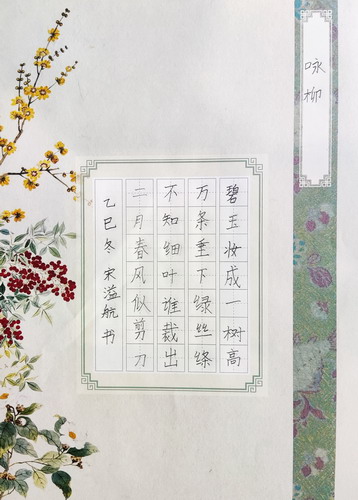 咏柳
碧玉妆成一树高
万条垂下绿丝绦
不知细叶谁裁出
二月春风似剪刀
乙巳冬宋溢航书